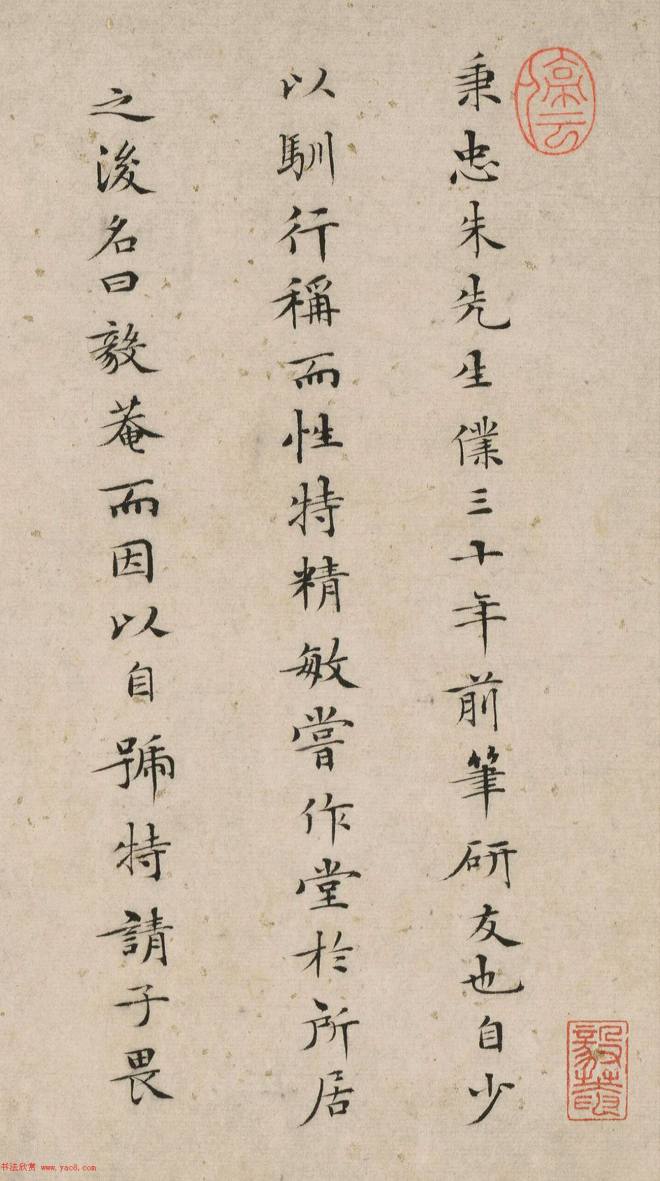 秉忠朱先生僕三十年前筆研友也自少
以馴行稱而性特精敏嘗作堂於所居
之後名曰毅菴而因以自號特請子畏
书法欣赏 www.yac8.com